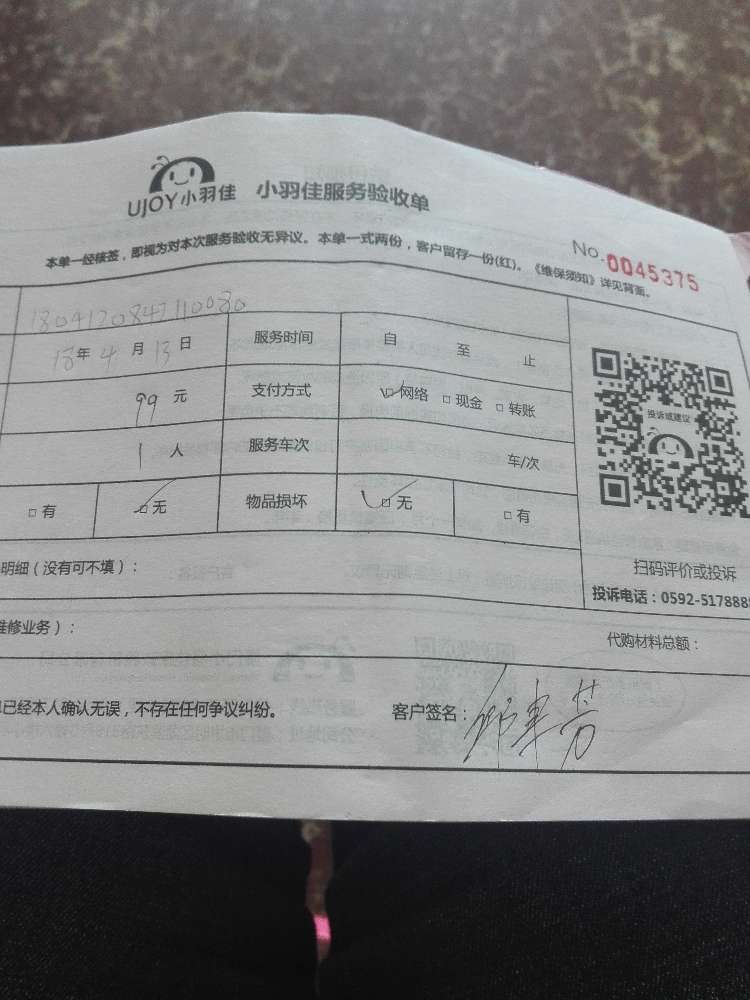 UJOY小羽佳 小羽佳服务验收单
No. 0045375
本单一经核签，即视为对本次服务验收无异议。本单一式两份，客户留存一份(红)。《维保须知》详见背面。
1804120847110080
18年4月13日 服务时间 自 至 止
99 元 支付方式 □网络 □现金 □转账
1 人 服务车次 车/次
□有 □无 物品损坏 □无 □有
投诉或建议
扫码评价或投诉
投诉电话：0592-517888
明细（没有可不填）：
维修业务）： 代购材料总额：
已经本人确认无误，不存在任何争议纠纷。 客户签名：